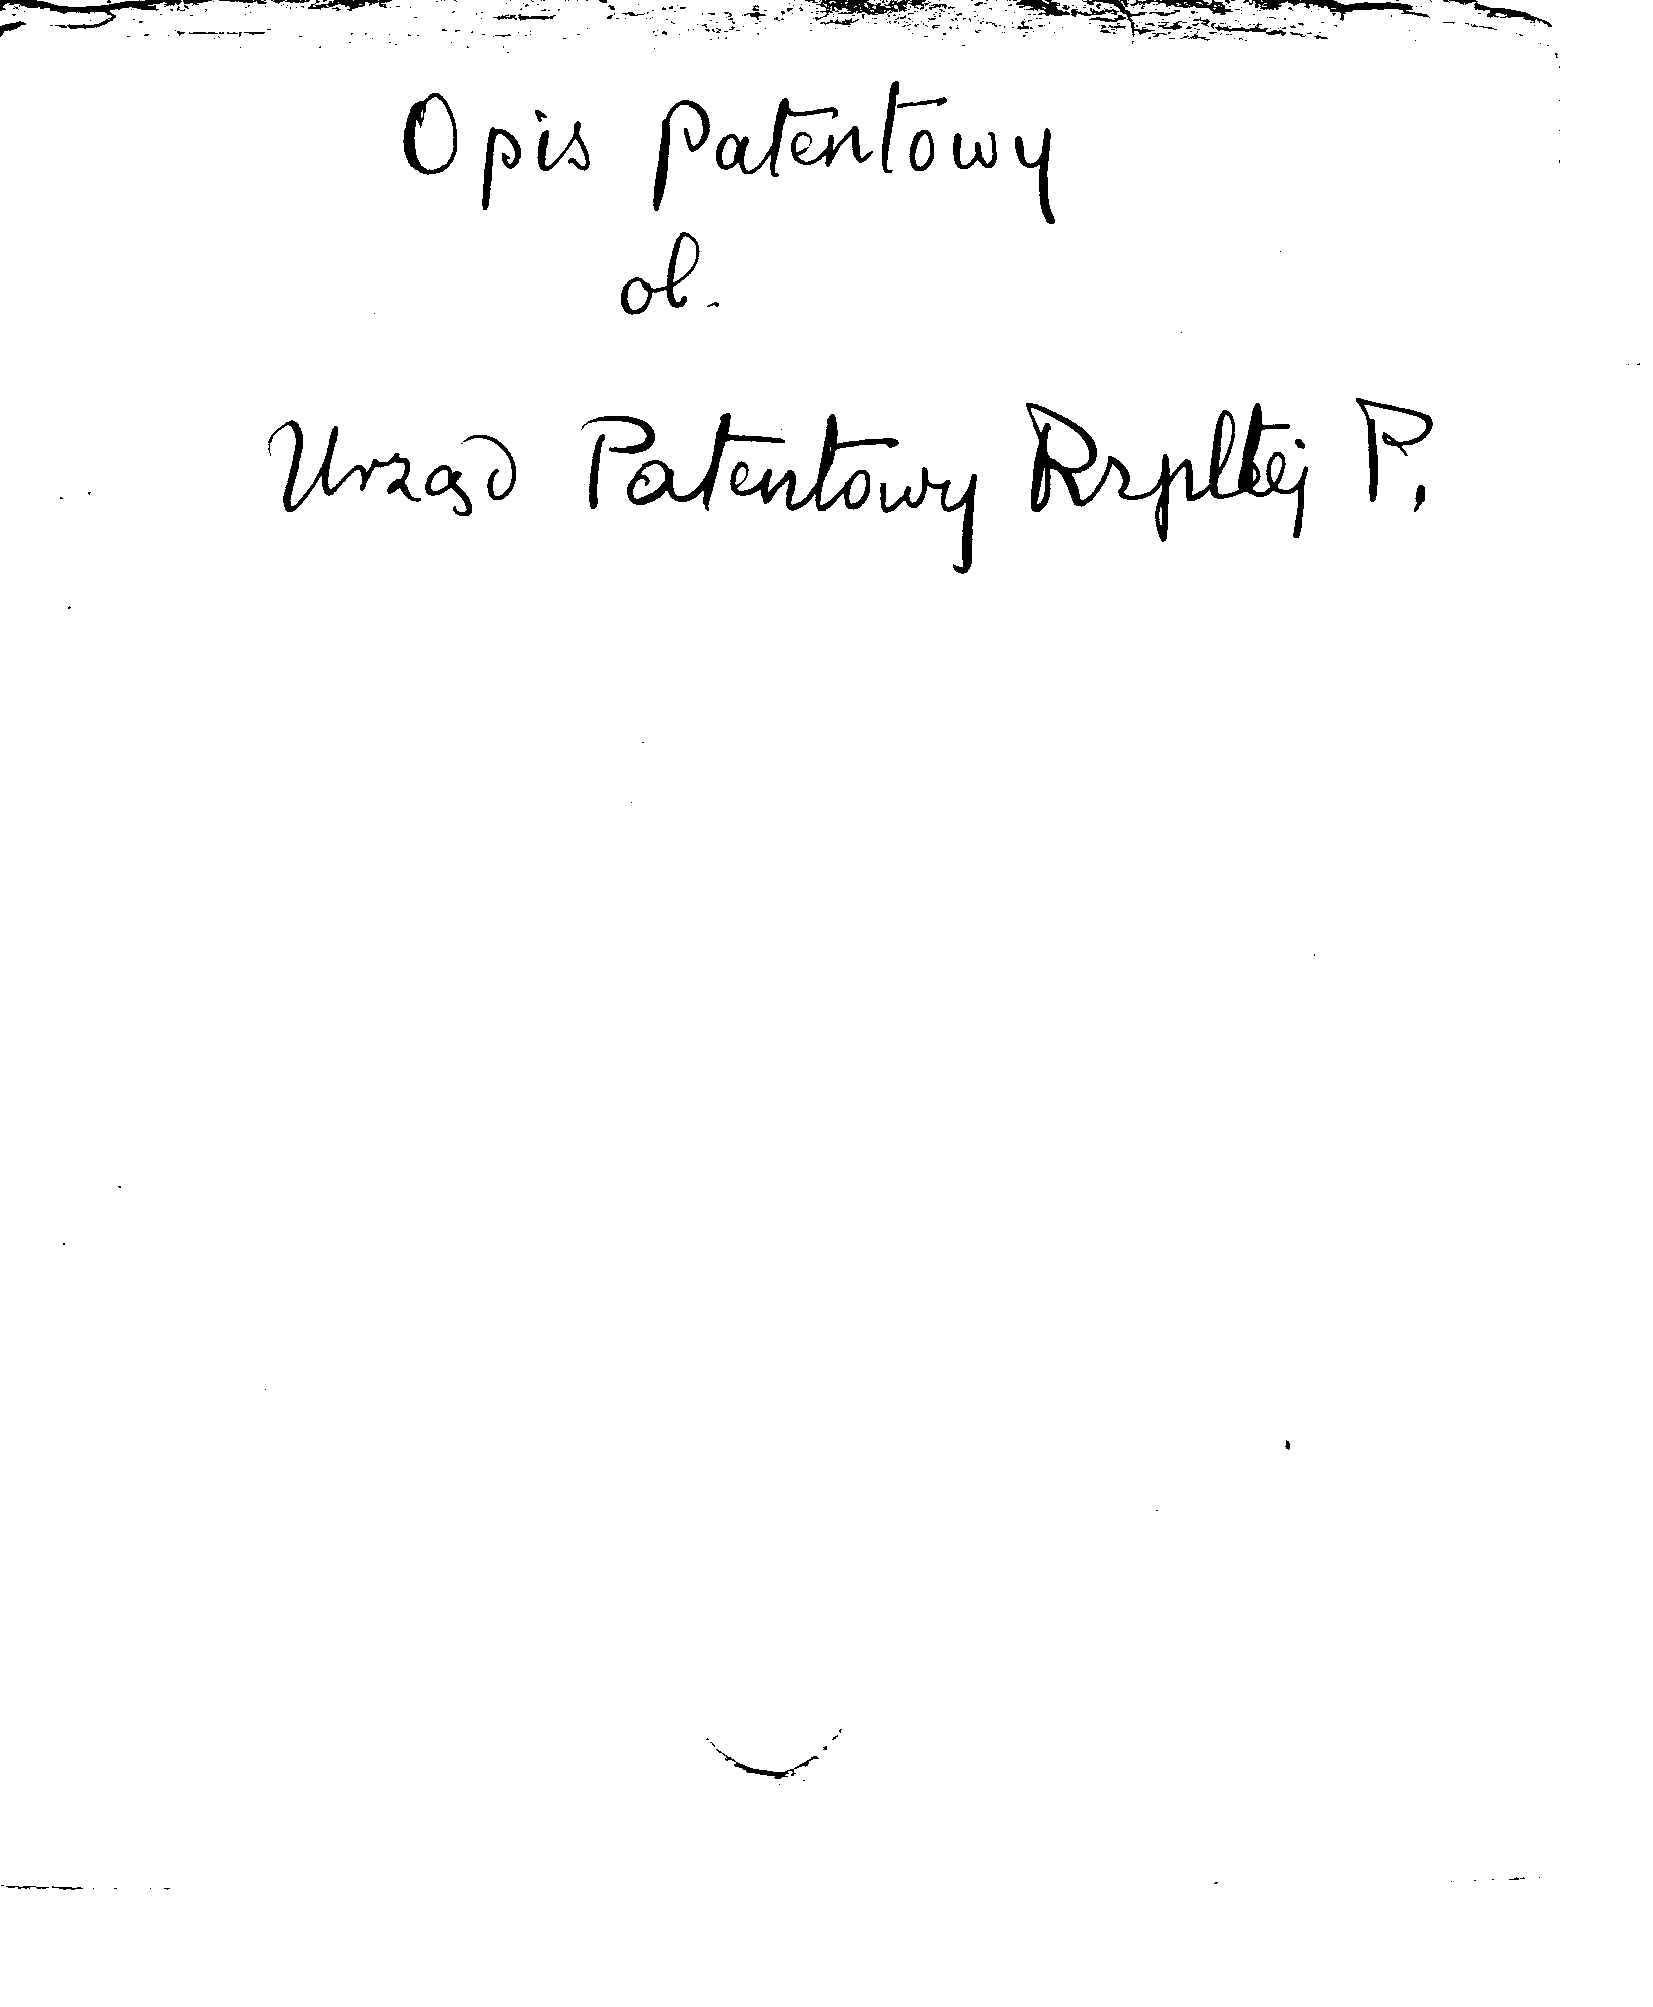 Opis Patentowy
ob.
Urząd Patentowy Rzpltej P.